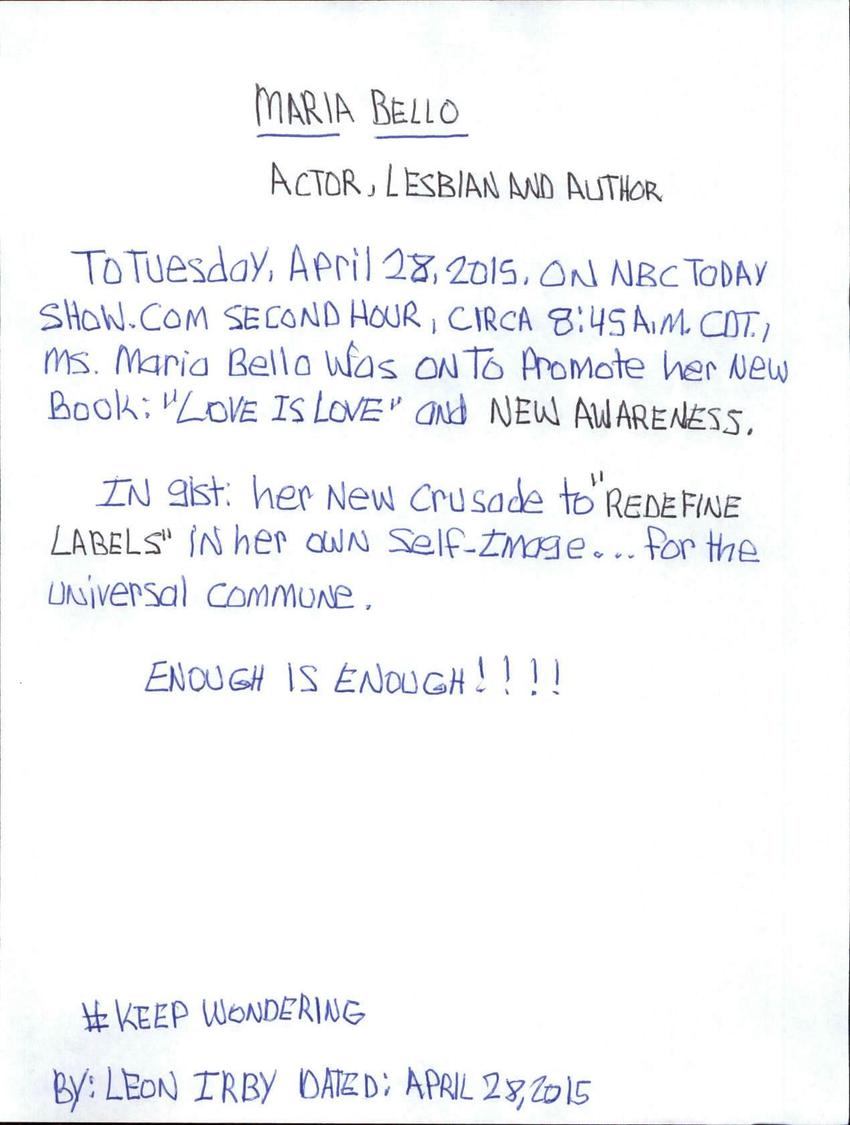 MARIA BELLO
ACTOR, LESBIAN AND AUTHOR
To Tuesday, April 28, 2015. ON NBC TODAY
SHOW.COM SECOND HOUR, CIRCA 8:45 A.M. CDT.,
Ms. Maria Bello Was ON To Promote her New
Book: "LOVE IS LOVE" and NEW AWARENESS.
IN gist: her New Crusade to "REDEFINE
LABELS" IN her OWN Self-Image... for the
universal commune.
ENOUGH IS ENOUGH!!!!
#KEEP WONDERING
BY: LEON IRBY DATED: APRIL 28, 2015